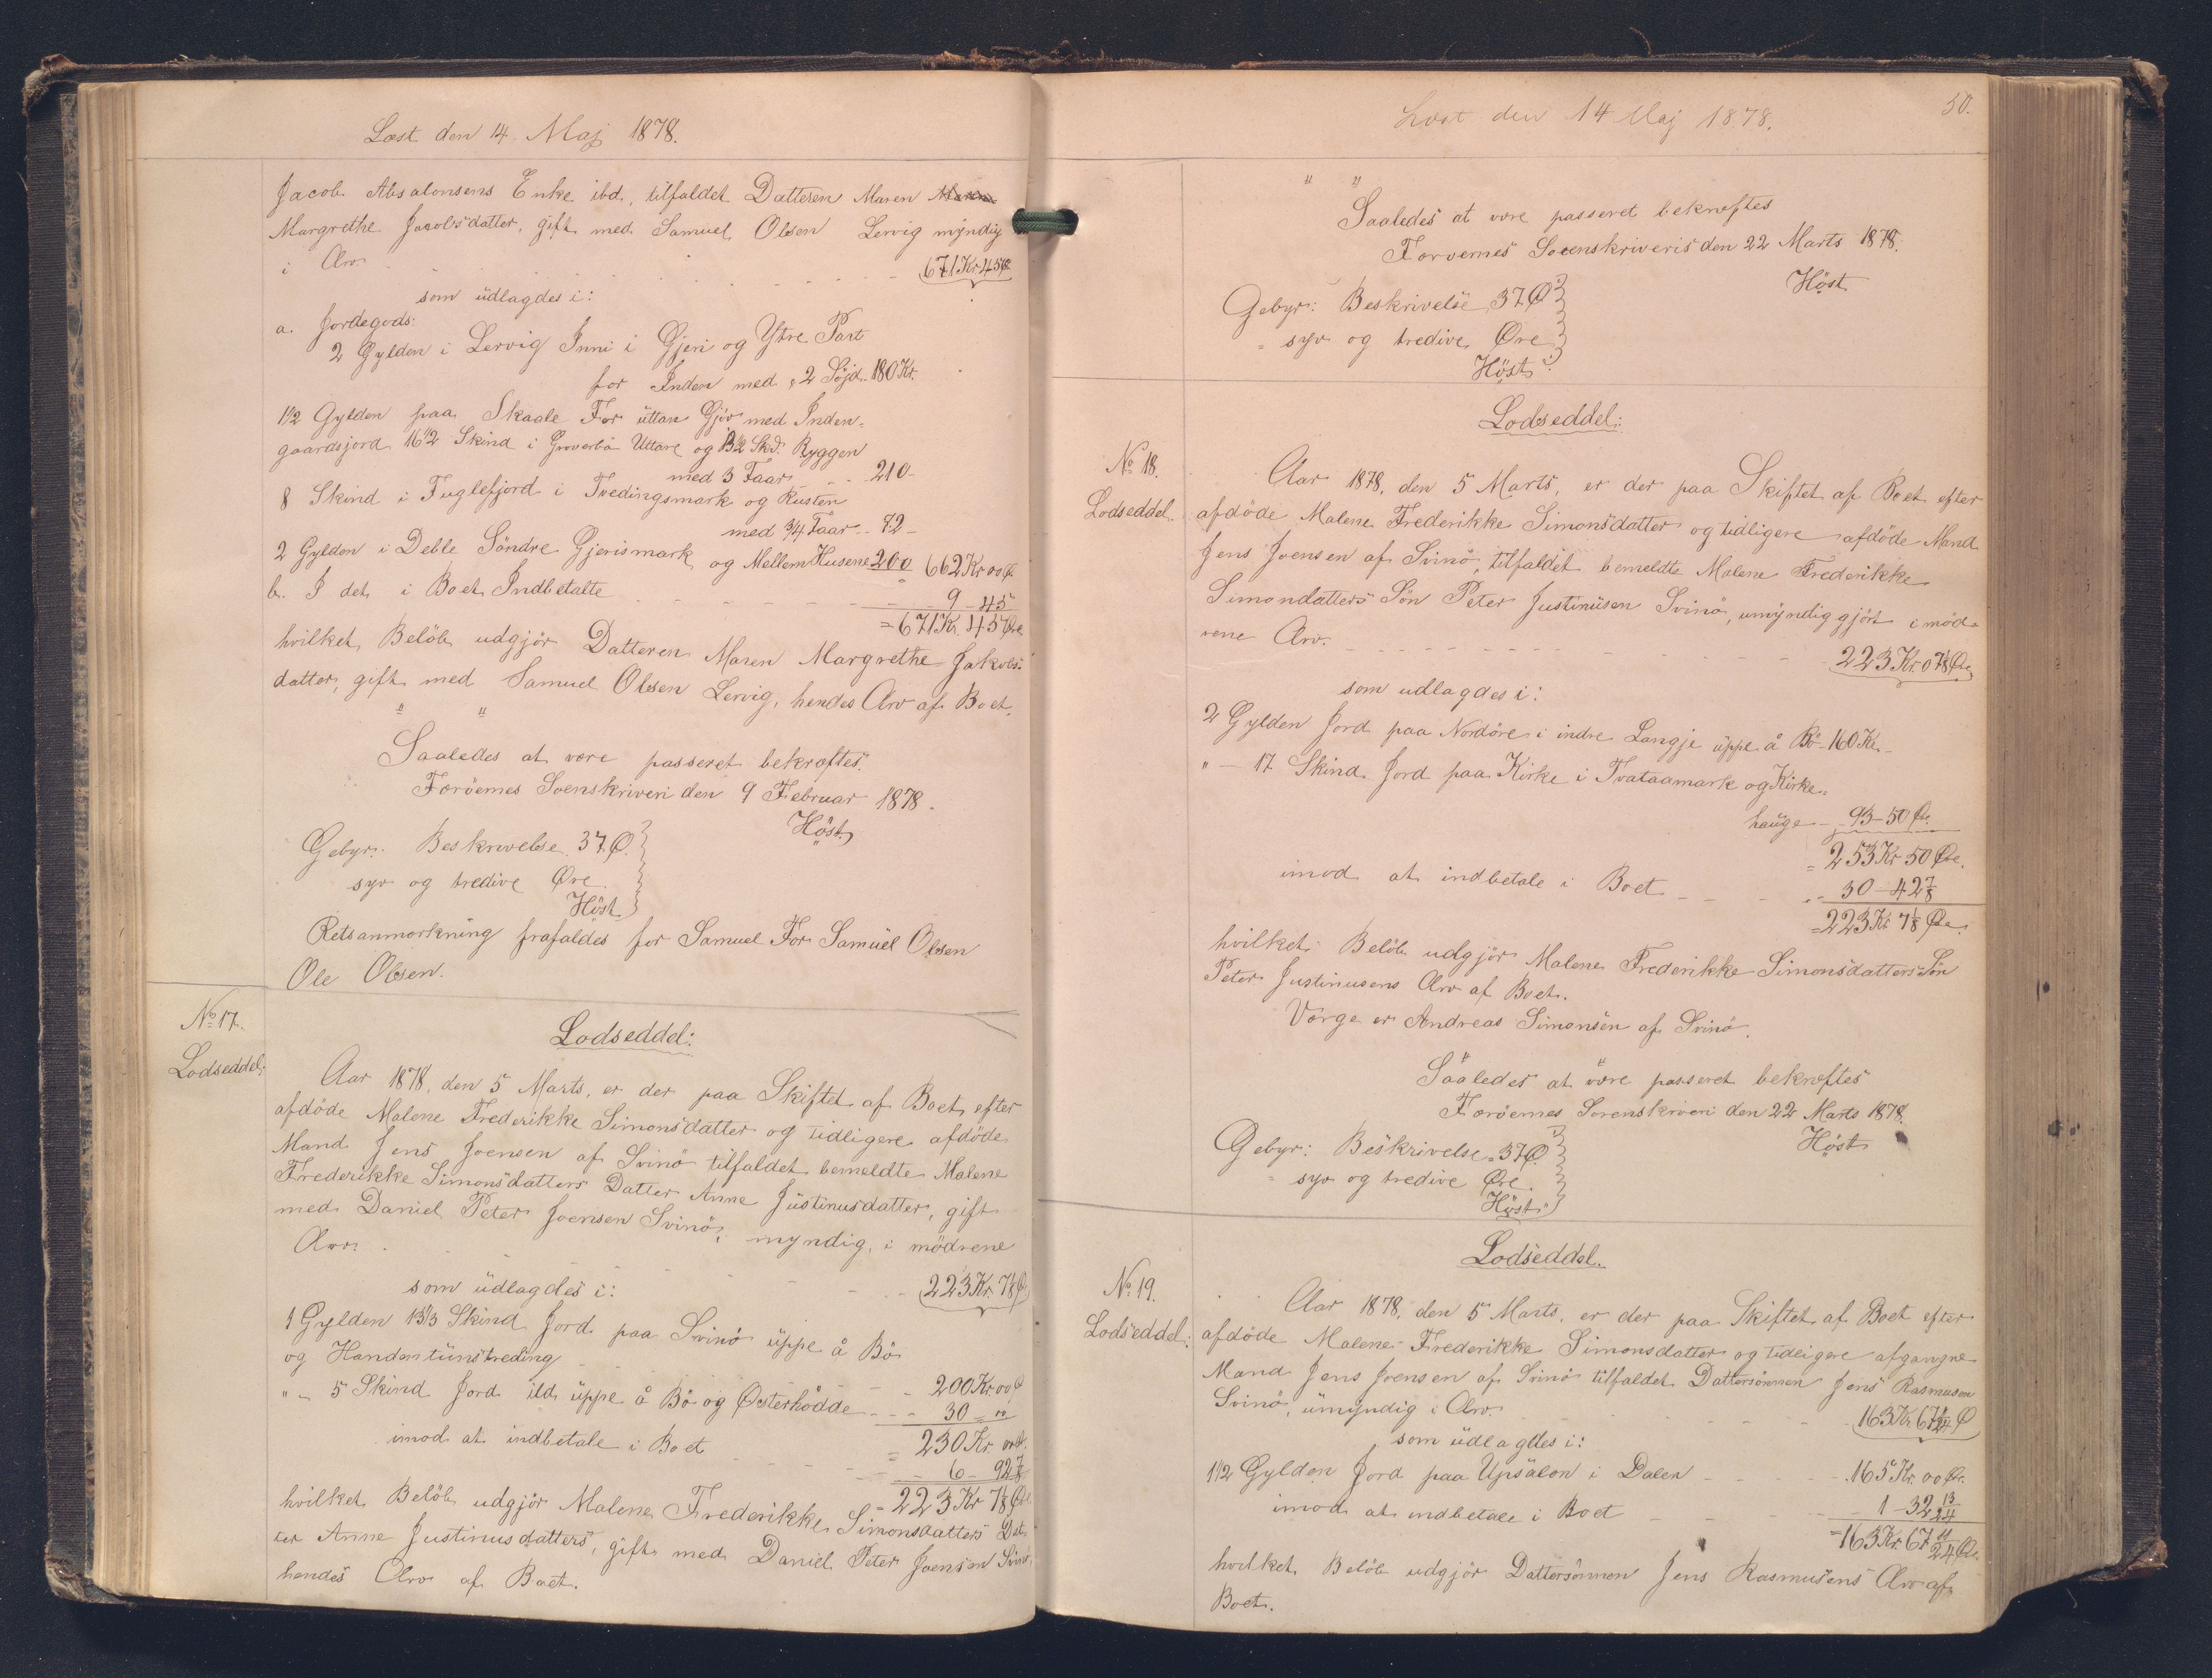 Læst den 14. Maj 1878.
Jacob Absalonsens Enke ibd., tilfaldet Datteren Maren
Margrethe Jacobsdatter, gift med Samuel Olsen Lervig myndig
i Arv. 671 Kr 45 Ø
som udlagdes i:
a. Jordegods:
2 Gylden i Lervig Inni i Gjeri og Ytre Part
for Inden med 2 Söjd. 180 Kr.
1 1/2 Gylden paa Skaale For uttan Gjöv med Inden-
gaardsjord 16 1/2 Skind i Groverbö Uttare og 13 1/2 Skd. Ryggen
med 3 Faar 210 -
8 Skind i Fuglefjord i Tredingsmark og Rusten
med 3/4 Faar - 72 -
2 Gylden i Deble Söndre Gjerismark og Mellem Husene 200 662 Kr 00 Ø
b. I det i Boet Indbetalte 9 - 45
= 671 Kr. 45 Øre
hvilket Belöb udgjör Datteren Maren Margrethe Jakobs-
datter, gift med Samuel Olsen Lervig, hendes Arv af Boet.
" "
Saaledes at være passeret bekræftes.
Færöernes Sorenskriveri den 9 Februar 1878.
Höst
Gebyr: Beskrivelse 37 Ø.
syv og tredive Øre.
Höst
Retsanmærkning frafaldes for Samuel For Samuel Olsen
Ole Olsen.
No 17.
Lodseddel:
Lodseddel:
Aar 1878, den 5 Marts, er der paa Skiftet af Boet efter
afdöde Malene Frederikke Simonsdatter og tidligere afdöde
Mand Jens Joensen af Svinö tilfaldet bemeldte Malene
Frederikke Simonsdatters Datter Anne Justinusdatter, gift
med Daniel Peter Joensen Svinö, myndig, i mödrene
Arv. 223 Kr. 7 1/8 Ø
som udlagdes i:
1 Gylden 13 1/3 Skind Jord paa Svinö uppe å Bö
og Handentünstreding 200 Kr. 00 Ø
" - 5 Skind Jord ibd. uppe å Bö og Østerhödde - - - 30 - "
= 230 Kr. 00 Ø.
imod at indbetale i Boet 6 - 92 7/8
= 223 Kr 7 1/8 Øre
hvilket Belöb udgjör Malene Frederikke Simonsdatters Dat-
ter Anne Justinusdatters, gift med Daniel Peter Joensen Svinö,
hendes Arv af Boet.
50.
Læst den 14 Maj 1878.
" "
Saaledes at være passeret bekræftes
Færöernes Sorenskriveri den 22 Marts 1878.
Höst
Gebyr: Beskrivelse 37 Ø
syv og tredive Øre
Höst
Lodseddel:
No 18.
Lodseddel.
Aar 1878, den 5 Marts, er der paa Skiftet af Boet efter
afdöde Malene Frederikke Simonsdatter og tidligere afdöde Mand
Jens Joensen af Svinö, tilfaldet bemeldte Malene Frederikke
Simondatters Sön Peter Justinusen Svinö, umyndiggjört i möd-
rene Arv. 223 Kr. 07 1/8 Øre
som udlagdes i:
2 Gylden Jord paa Nordöre i indre Langje uppe å Bö - 160 Kr. -
" - 17 Skind Jord paa Kirke i Tvataamark og Kirke-
hauge - 93 - 50 Øre.
= 253 Kr 50 Øre.
imod at indbetale i Boet - - - 30 - 42 7/8
= 223 Kr 7 1/8 Øre.
hvilket Belöb udgjör Malene Frederikke Simonsdatters Sön
Peter Justinusens Arv af Boet.
Værge er Andreas Simonsen af Svinö.
Saaledes at være passeret bekræftes
Færöernes Sorenskriveri den 22 Marts 1878.
Höst
Gebyr: Beskrivelse 37 Ø.
syv og tredive Øre.
Höst
Lodseddel.
No 19.
Lodseddel:
Aar 1878, den 5 Marts, er der paa Skiftet af Boet efter
afdöde Malene Frederikke Simonsdatter og tidligere afgangne
Mand Jens Joensen af Svinö tilfaldet Dattersönnen Jens Rasmusen
Svinö, umyndig i Arv. 163 Kr. 67 11/24 Ø
som udlagdes i:
1 1/2 Gylden Jord paa Upsalon i Dalen 165 Kr. 00 Øre.
imod at indbetale i Boet 1 - 32 13/24
= 163 Kr. 67 11/24 Øre.
hvilket Belöb udgjör Dattersönnen Jens Rasmusens Arv af
Boet.